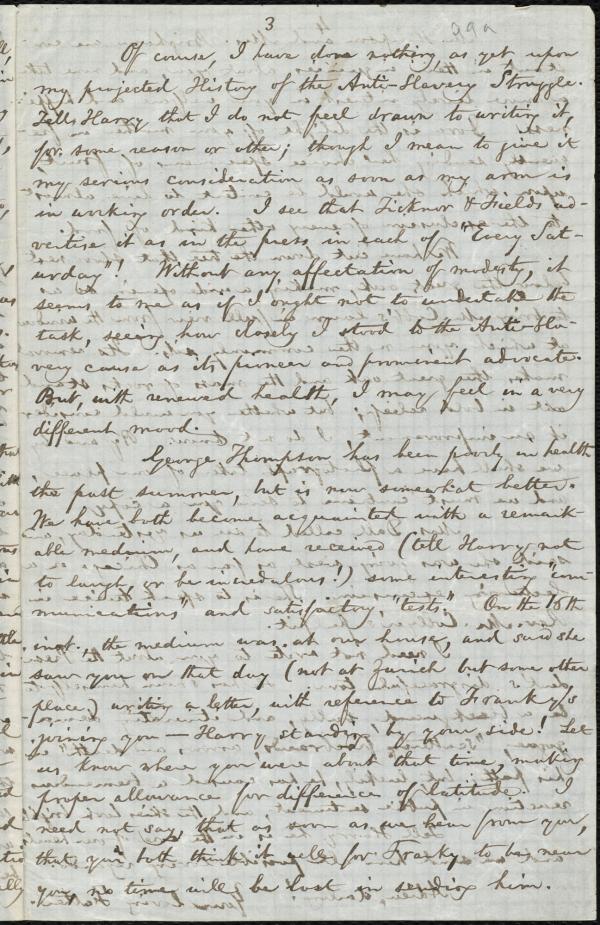 3
99a
Of course, I have done nothing, as yet, upon
my projected History of the Anti-Slavery Struggle.
Tells Harry that I do not feel drawn to writing it,
for some reason or other; though I mean to give it
my serious consideration as soon as my arm is
in working order. I see that Ticknor & Fields ad-
vertise it as in the press, in each of "Every Sat-
urday"! Without any affectation of modesty, it
seems to me as if I ought not to undertake the
task, seeing how closely I stood to the Anti-Sla-
very cause as its pioneer and prominent advocate.
But, with renewed health, I may feel in a very
different mood.
George Thompson has been poorly in health
the past summer, but is now somewhat better.
We have both become acquainted with a remark-
able medium, and have received (tell Harry not
to laugh, or be incredulous!) some interesting "com-
munications" and satisfactory "tests." On the 15th
inst., the medium was at our house, and said she
saw you on that day (not at Zurich but some other
place) writing a letter, with reference to Franky's
joining you — Harry standing by your side! Let
us know where you were about that time, making
proper allowance for difference of latitude. I
need not say, that as soon as we hear from you,
that you both think it well for Franky to be near
you, no time will be lost in sending him.